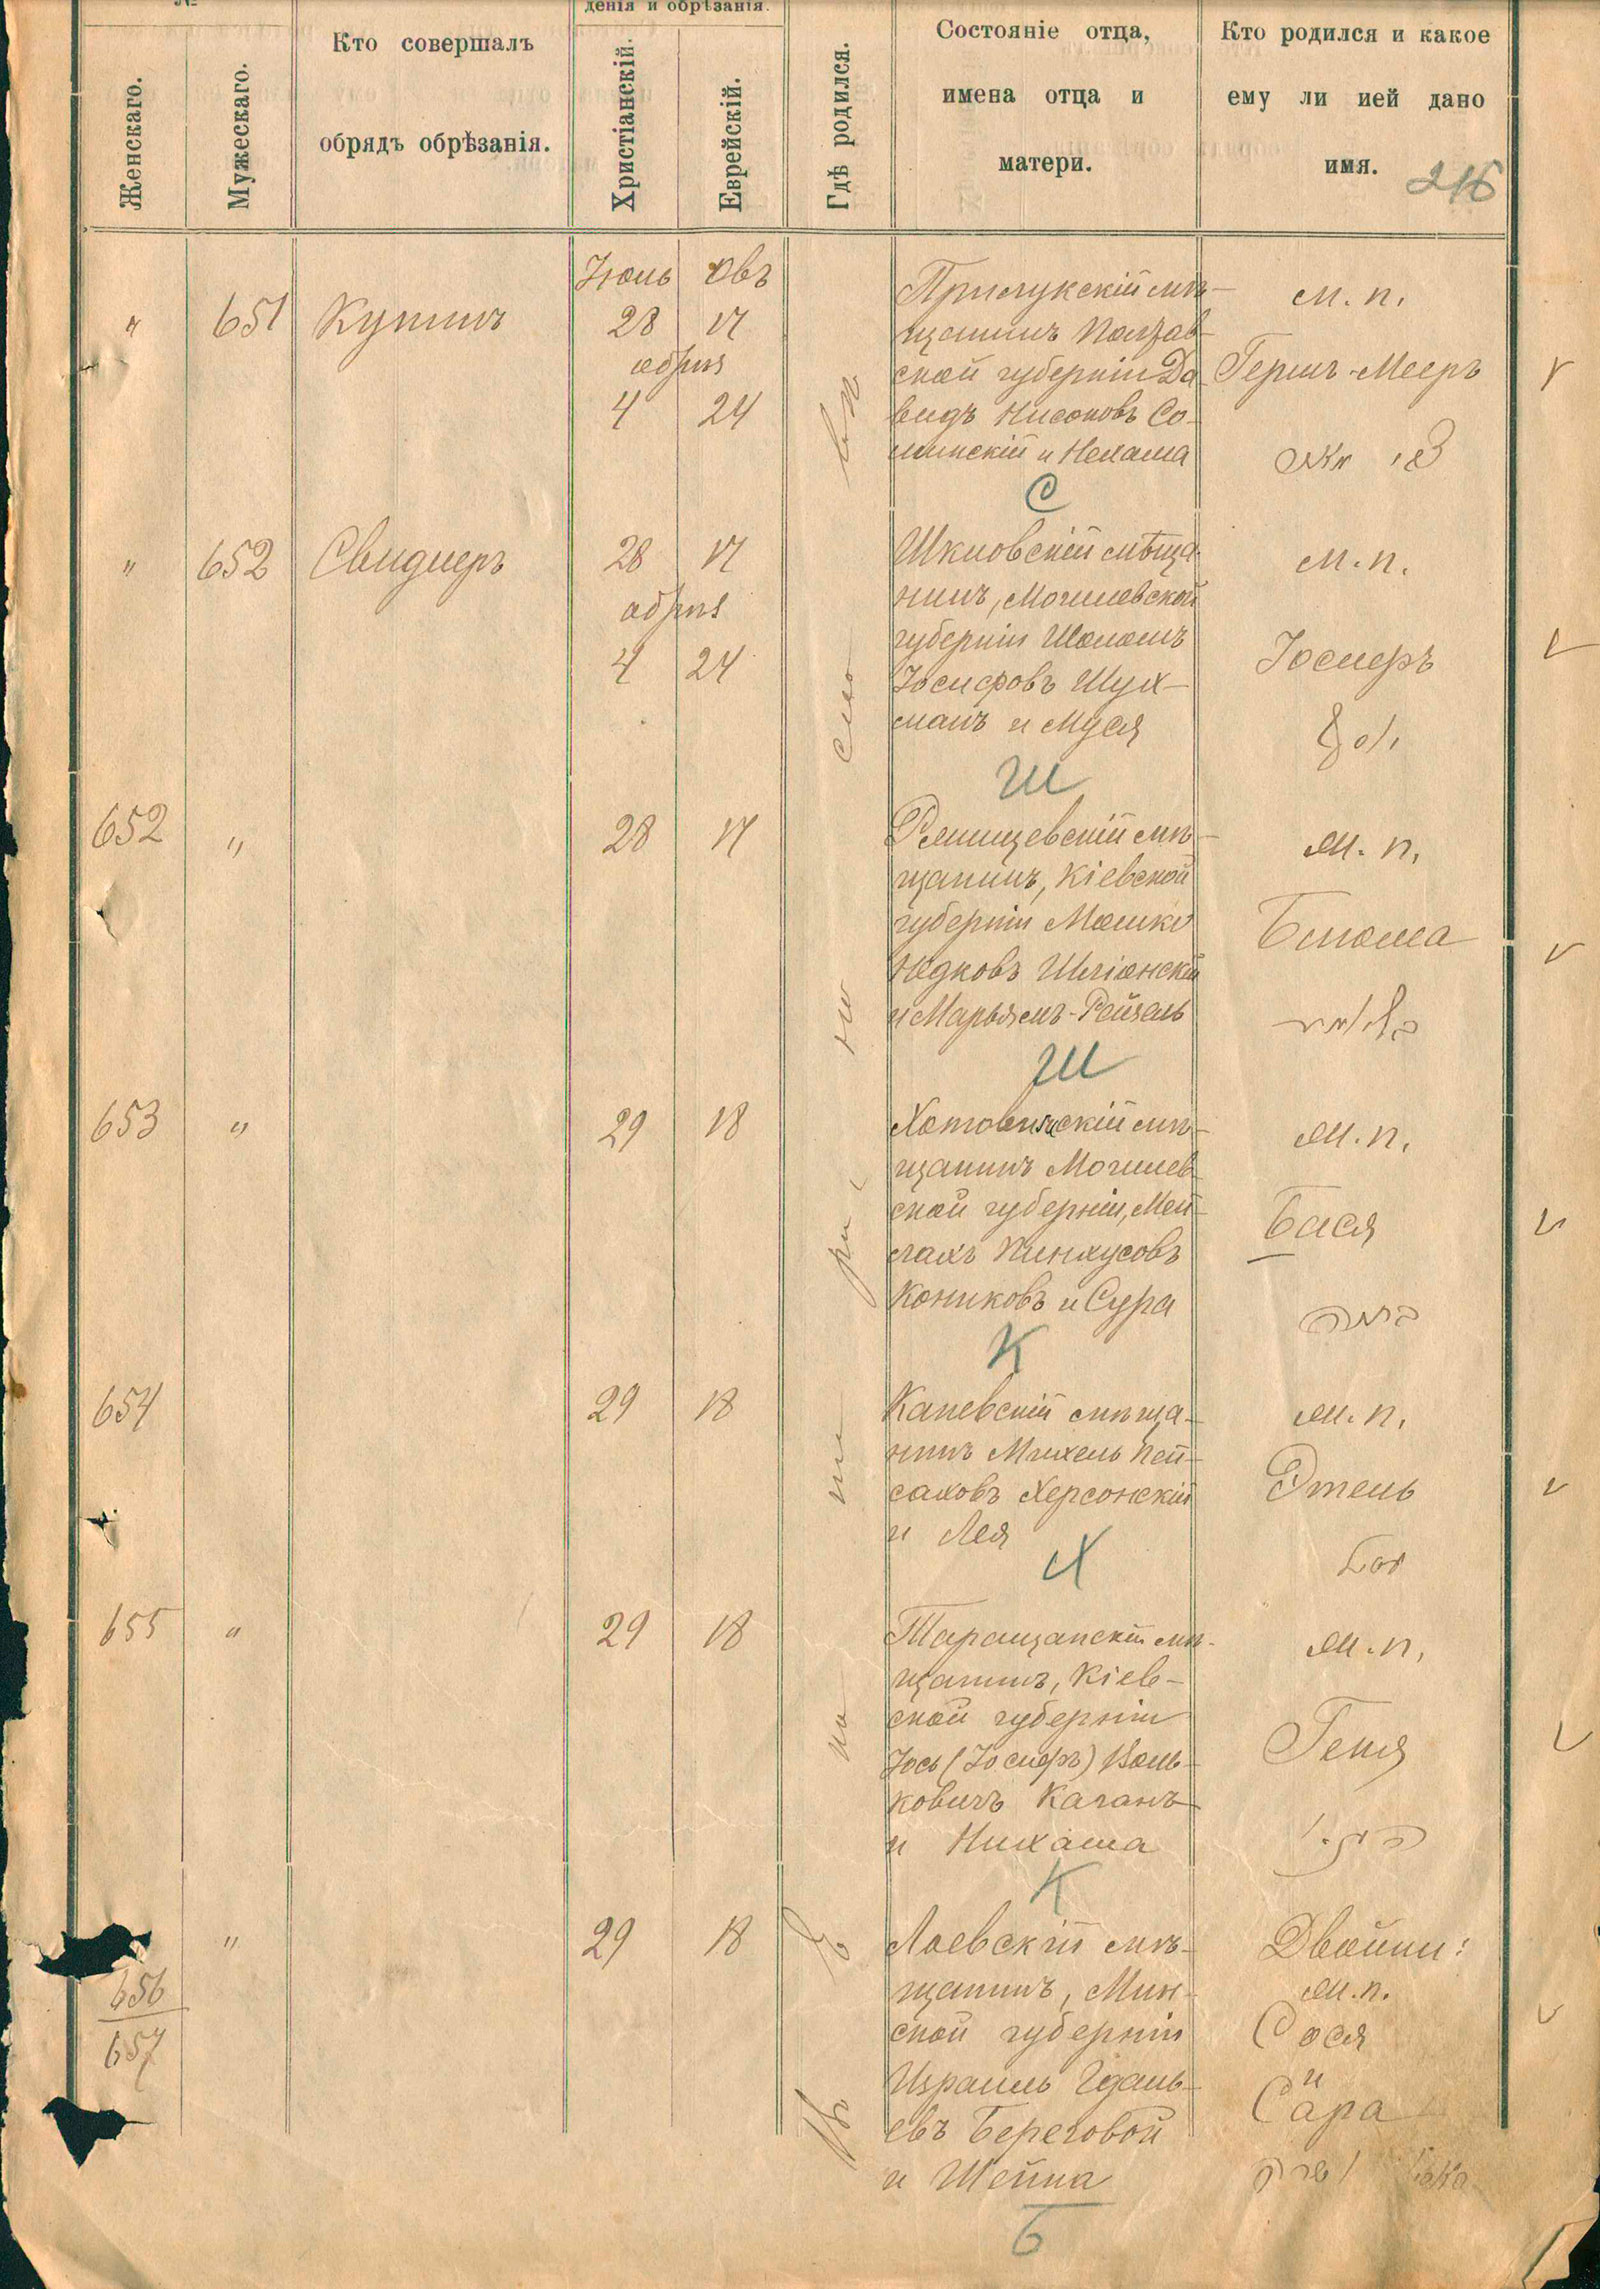 №
денія и обрѣзанія.
Женскаго.
Мужескаго.
Кто совершалъ
обрядъ обрѣзанія.
Христіанскій.
Еврейскій.
Гдѣ родился.
Состояніе отца,
имена отца и
матери.
Кто родился и какое
ему ли ией дано
имя.
216
Іюль Овъ
" 651 28 17
обрѣз
4 24
Прилукскій мѣ-
щанинъ Полтав-
ской губерніи Да
видъ Нисоновъ Со-
и Нехама
С
м. п.
Гершъ-Мееръ
" 652 Свидлеръ 28 17
обрѣз
4 24
Шкловскій мѣща-
нинъ, Могилевской
губерніи Шоломъ
Іосифовъ Шул-
манъ и Муся
Ш
м. п.
Іосиеръ
652 " 28 17
мѣ-
щанинъ, Кіевской
губерніи Мошко
Юдковъ
и Марьямъ-Рейзель
Ш
м. п.
Блюма
בלומא
653 " 29 18
Хотовижскій мѣ-
щанинъ Могилев
ской губерніи, Мей-
лахъ Пинхусовъ
Кониковъ и Сура
К
м. п.
Бася
654 29 18
Каневскій мѣща-
нинъ Михель Пей-
саховъ Херсонскій
и Лея
Х
м. п.
Этель
655 " 29 18
Таращанскій мѣ-
щанинъ, Кіев-
ской губерніи
Іось (Іосифъ) Воль-
ковичъ Каганъ
и Нихама
К
м. п.
Геня
656
657
" 29 18
Лоевскій мѣ-
щанинъ, Мин-
ской губерніи
Израиль Гдаль-
евъ Береговой
и Шейна
Б
Двойни:
м. п.
Сося
и
Сара